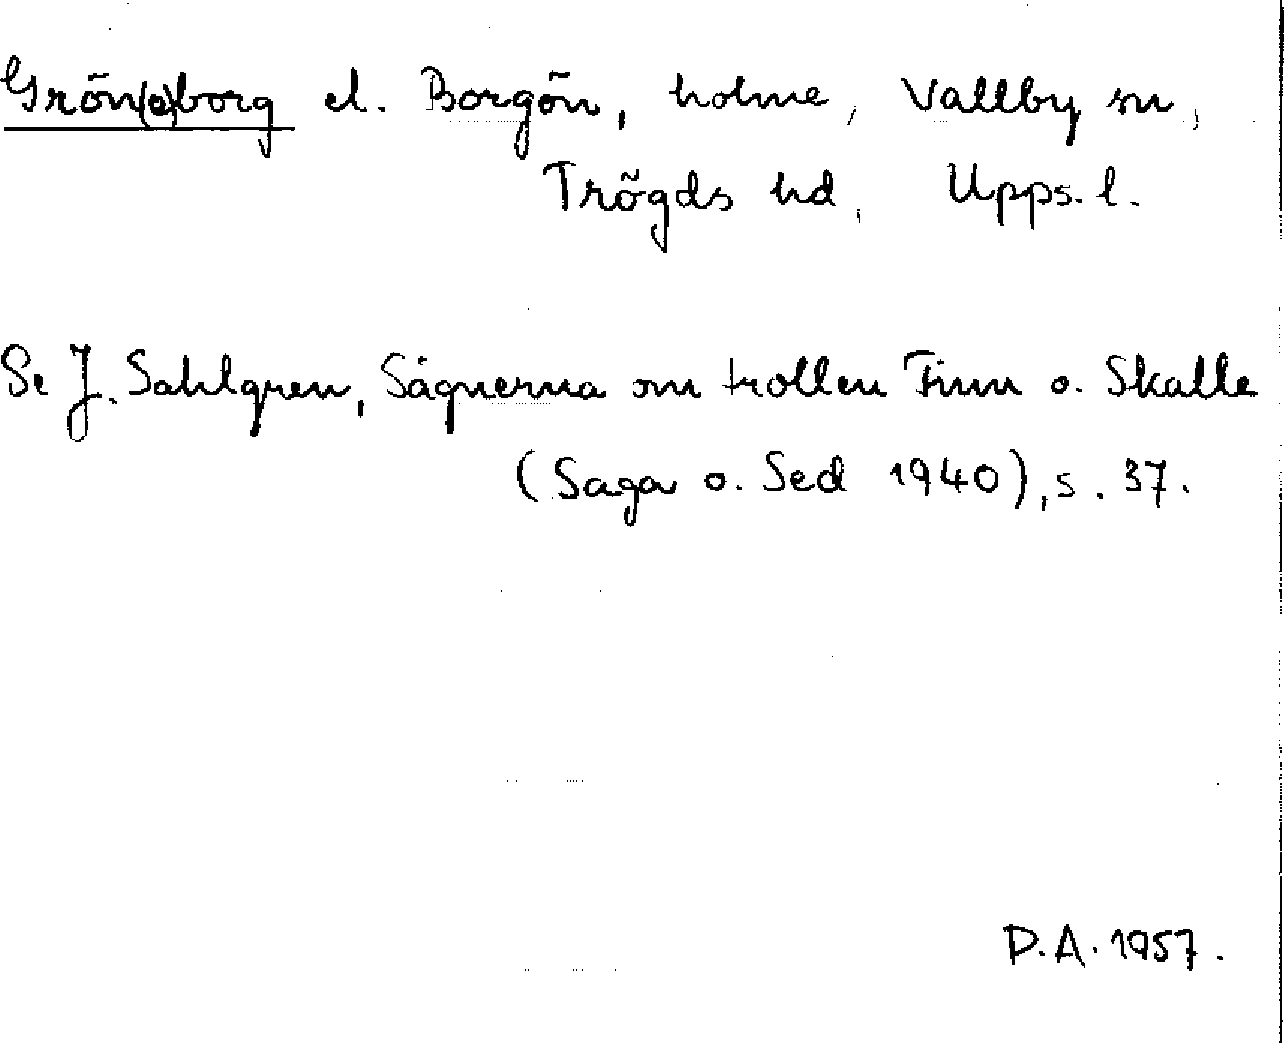 Grön(e)borg el. Borgön, holme, Vallby sn,
Trögds hd, Upps. l.
Se J. Sahlgren, Sägnerna om trollen Finn o. Skalle
(Saga o. Sed 1940), s. 37.
P.A. 1957.